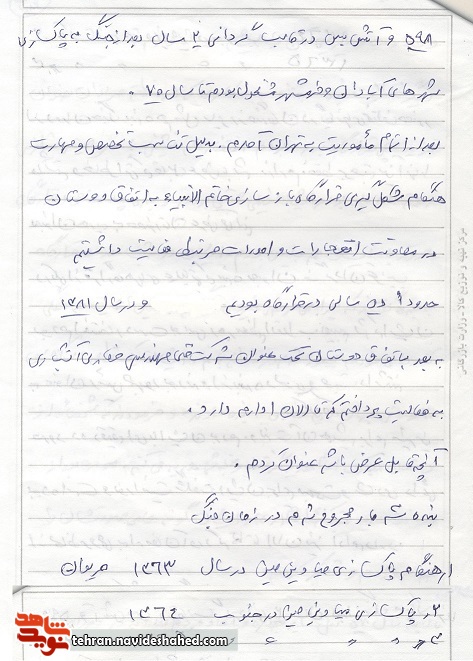 ۵۹۸ و آتش بس در قالب گردانی ۲ سال بعد از جنگ به پاکسازی
شهرهای آبادان و خرمشهر مشغول بودم تا سال ۷۵.
بعد از اتمام مأموریت به تهران آمدم. بدلیل تناسب تخصص و مهارت
هنگام شکل گیری قرارگاه بازسازی خاتم الأنبیاء به اتفاق دوستان
در معاونت انفجارات و امورات مرتبط فعالیت داشتیم
حدوداً ده سالی در قرارگاه بودیم و در سال ۱۳۸۱
به بعد با اتفاق دوستان تحت عنوان شرکت فنی مهندسی حفاری آتشباری
به فعالیت پرداختم که تا الان ادامه دارد.
آنچه قابل عرض باشه عنوان کردم.
بنده سه بار مجروح شدم در زمان جنگ
۱ر هنگام پاکسازی میادین مین در سال ۱۳۶۳ مریوان
۲ر پاکسازی میادین مین در جنوب ۱۳۶۴
۳ر " " " "
شاهد
نوید
tehran.navideshahed.com